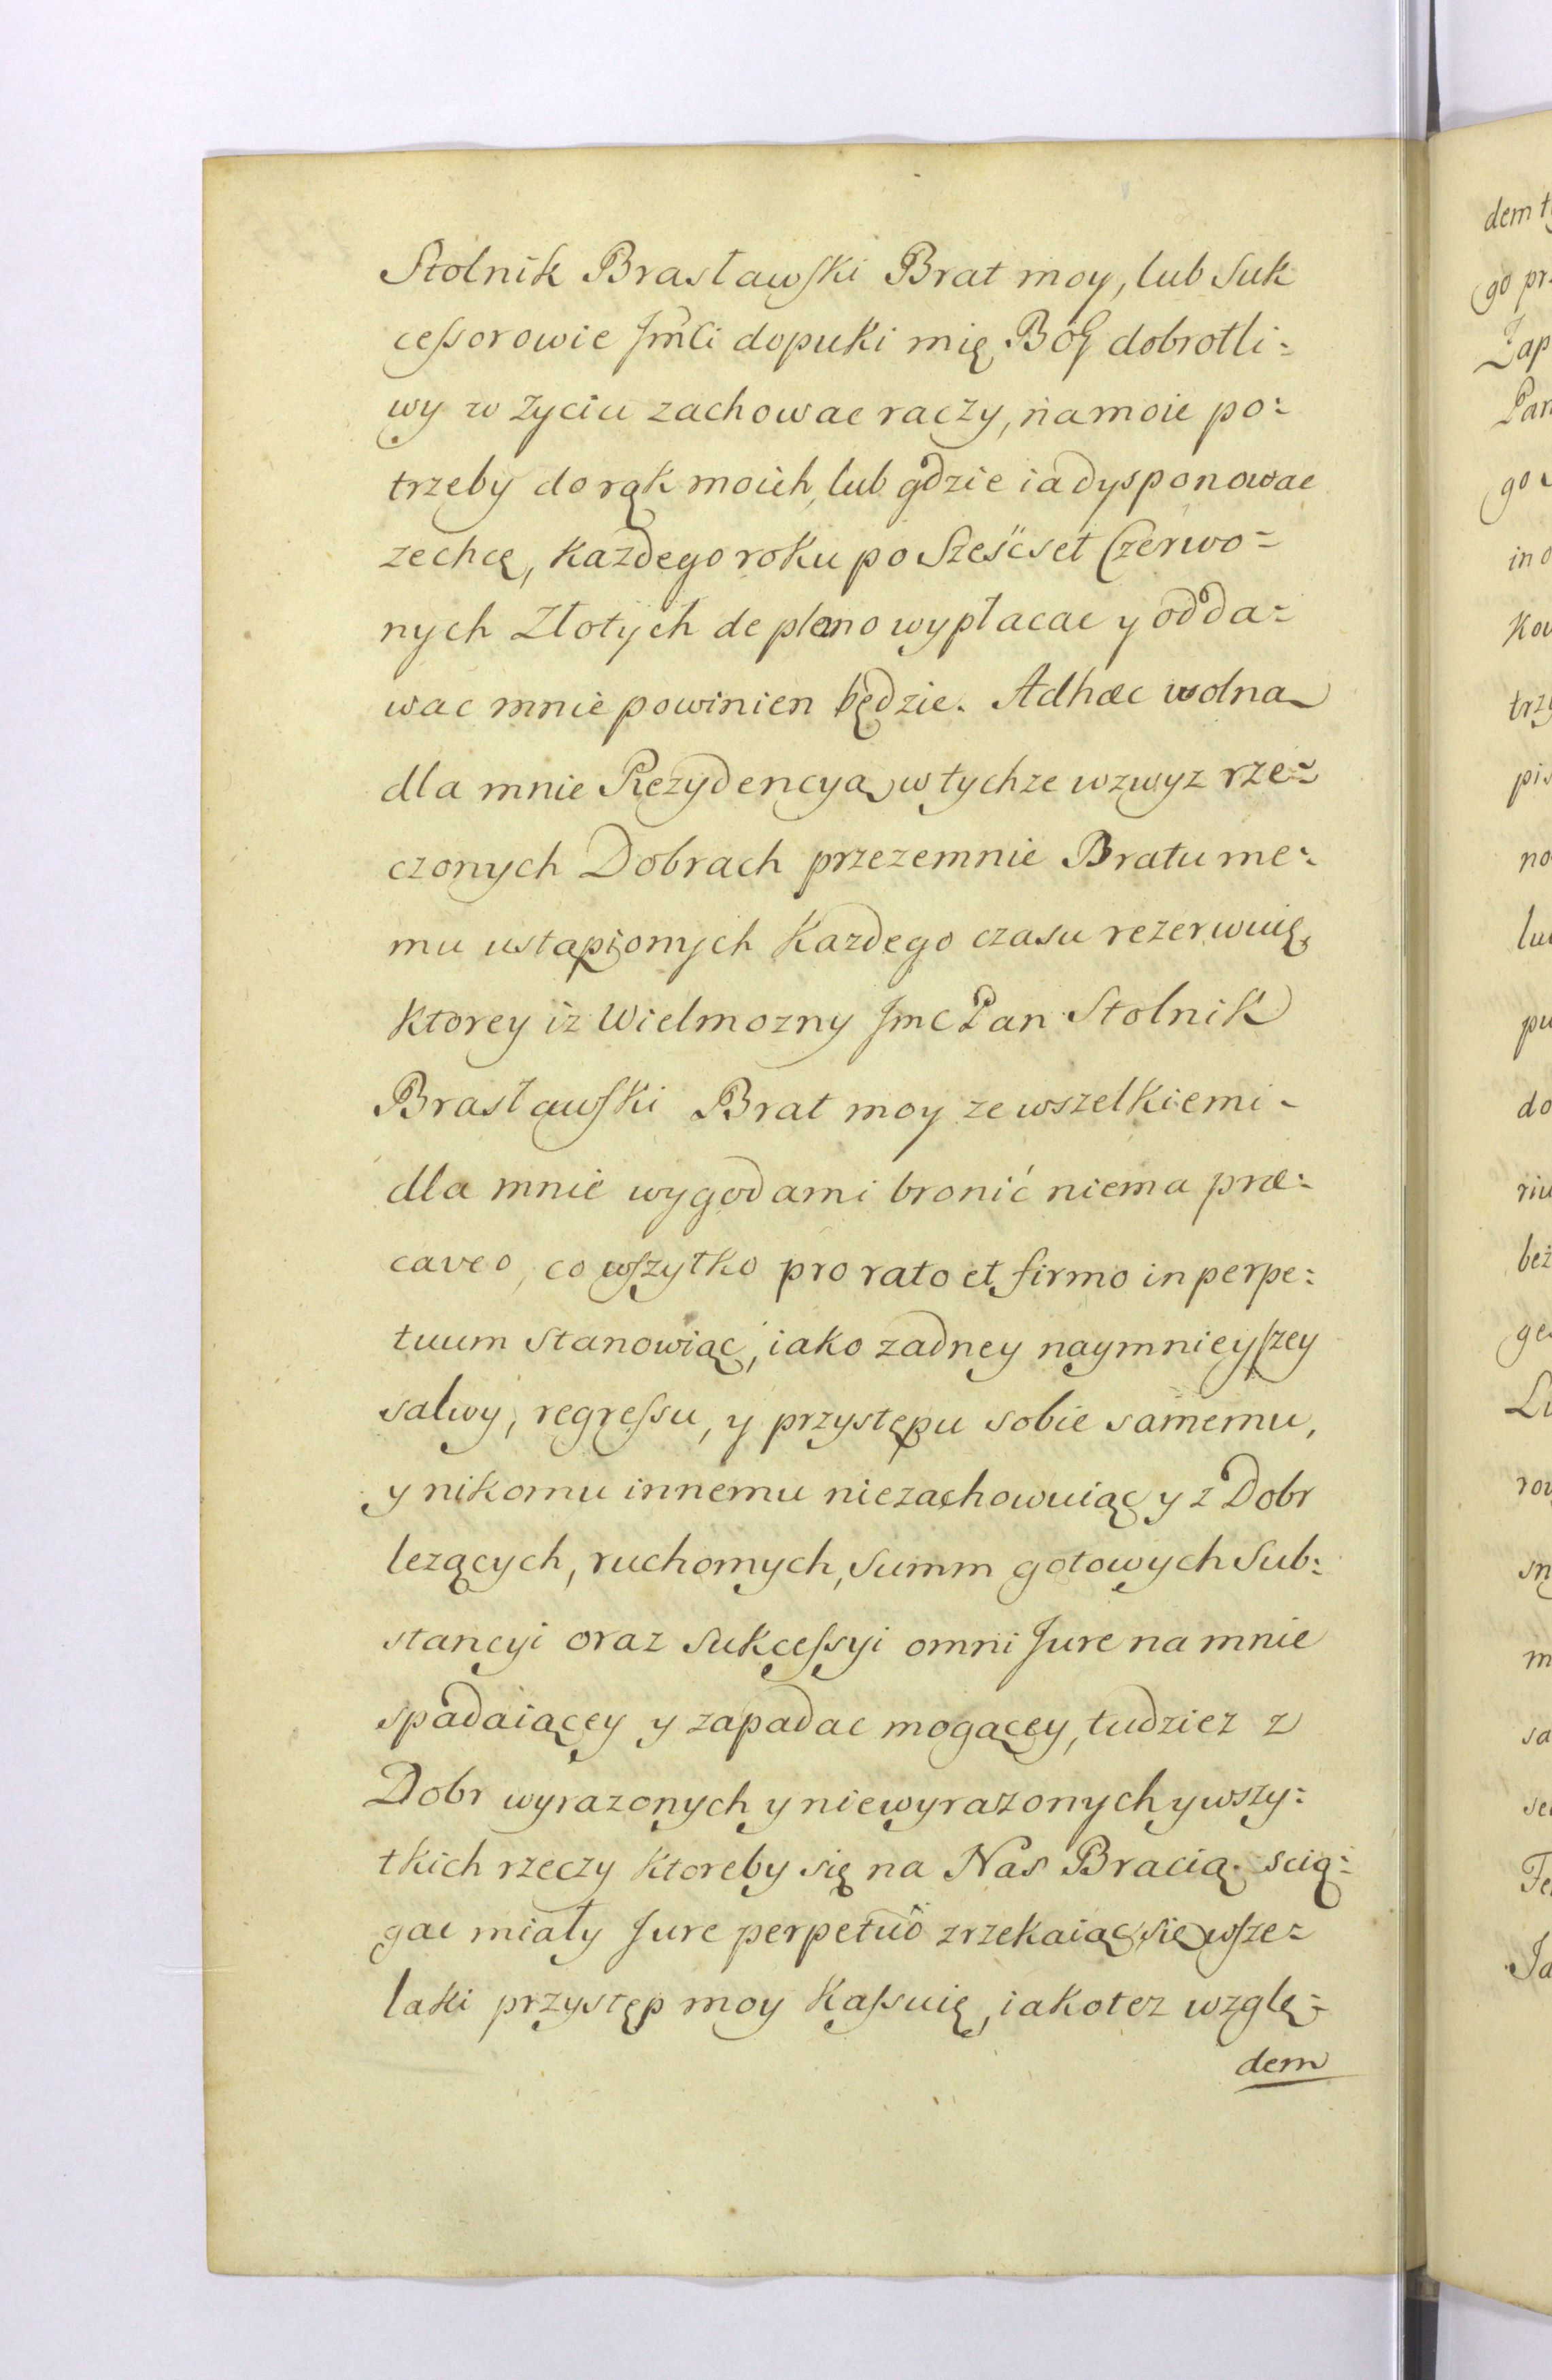 Stolnik Brasławſki Brat moy, lub Suk
ceſsorowie Jm̃ci dopuki mię Bóg dobrotli=
wy w życiu zachowac raczy, na moie po=
trzeby do rąk moich, lub gdzie ia dysponowac
zechcę, każdego roku po Sześcset Czerwo=
nych Złotych de pleno wypłacac y odda=
wac mnie powinien będzie. Adhæc wolna
dla mnie Rezydencya w tychze wzwyz rze=
czonych Dobrach przezemnie Bratu me=
mu ustąpionych Kazdego czasu rezerwuię,
Ktorey iz Wielmozny Jmc Pan Stolnik
Brasławſki Brat moy ze wszelkiemi
dla mnie wygodami bronić niema præ=
caveo, co wſzytko pro rato et firmo in perpe=
tuum stanowiąc, iako zadney naymnieyſzey
salwy, regreſsu, y przystępu sobie samemu,
y nikomu innemu niezachowuiąc y z Dobr
lezących, ruchomych, Summ gotowych Sub=
stancyi oraz Sukceſsyi omni Jure na mnie
spadaiącey y zapadac mogącey, tudziez z
Dobr wyrazonych y niewyrazonych y wszy=
tkich rzeczy ktoreby się na Nas Bracią scią=
gac miały Jure perpetuo zrzekaiąc się wſze=
laki przystęp moy Kaſsuię, iakotez wzglę=
dem